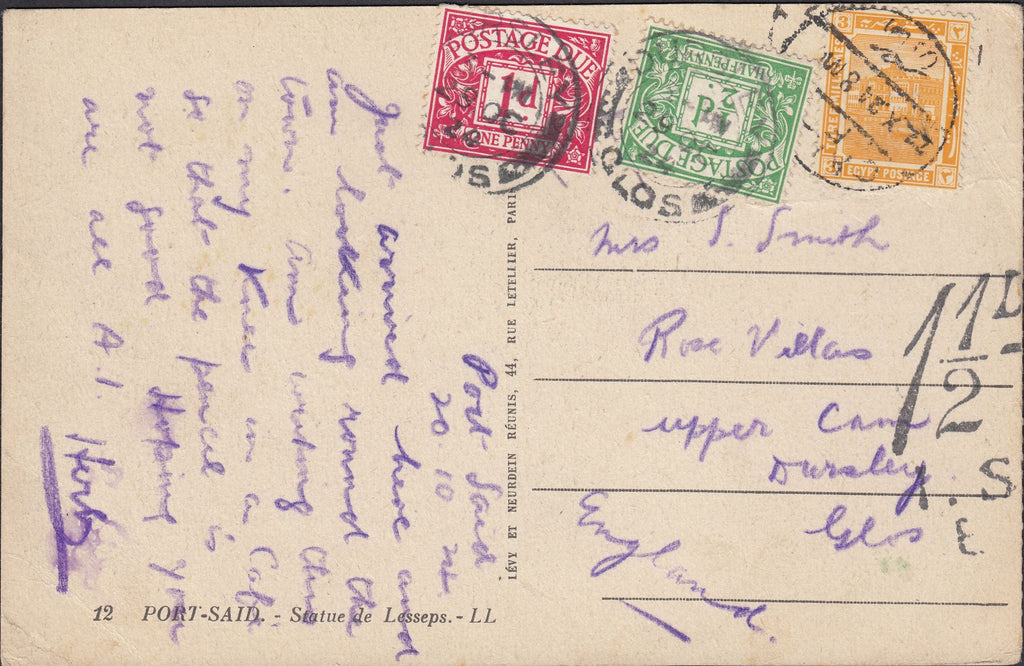 Port Said
20.10.
Just arrived here and
am looking round the
town. Am writing this
on my knee in a Cafe
so that the pencil is
not good Hoping you
are all A.1.
Herb
POSTAGE DUE
1d
ONE PENNY
HALFPENNY
½d
POSTAGE DUE
3
THREE MILLIEMES
EGYPT POSTAGE
Mrs S. Smith
Rose Villas
upper Cam
Dursley
Glos
England.
1½D
LÉVY ET NEURDEIN RÉUNIS, 44, RUE LETELLIER, PARIS
12 PORT-SAID. - Statue de Lesseps. - LL